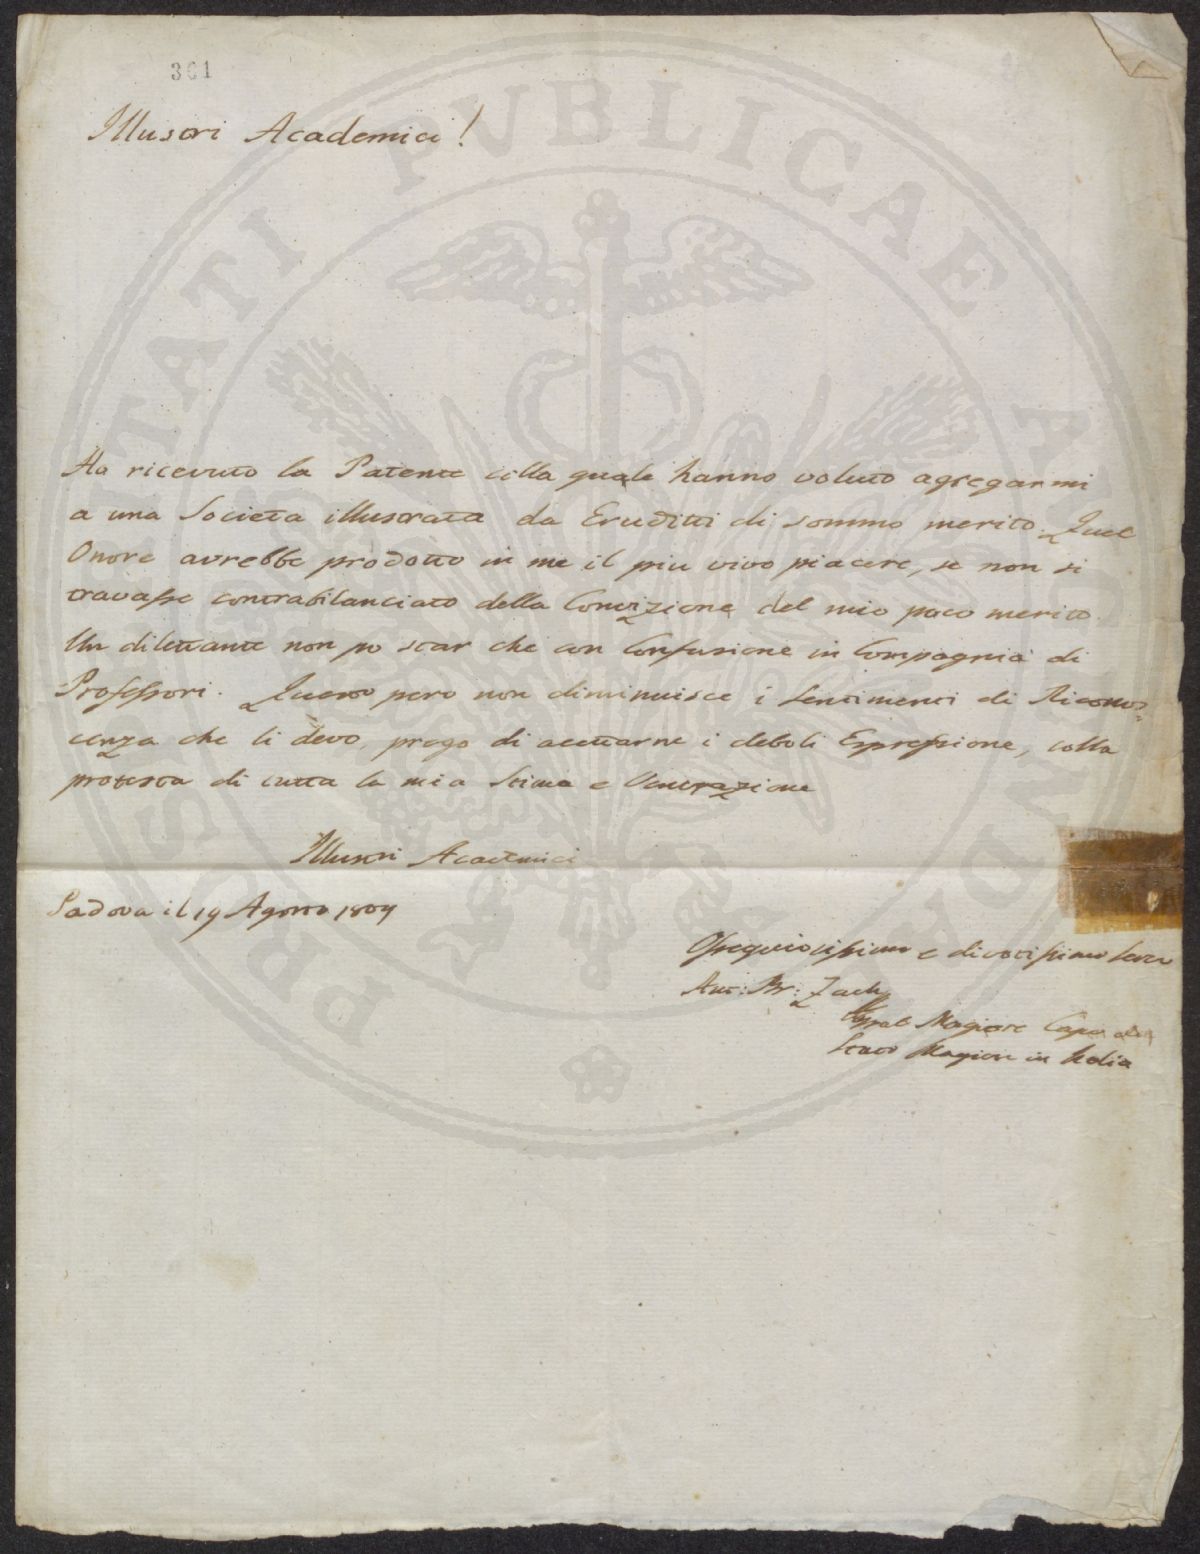 361
Illustri Academici!
Ho ricevuto la Patente colla quale hanno voluto agregarmi
a una Societa illustrata da Eruditti di sommo merito. Quel
Onore avrebbe prodotto in me il piu vivo piacere, se non si
travasse contrabilanciato della Convizione del mio poco merito.
Un dilettante non po star che con Confusione in Compagnia di
Professori. Questo pero non diminuisce i Sentimenti di Riconos=
cenza che li devo, prego di acettarne i deboli Espressione, colla
protesta di tutta la mia Stima e Venerazione
Illustri Academici
Padova il 19 Agosto 1804
Ossequiosissimo e divotissimo Serv
Ant: Br: Zach
Magiore Capo dello
Stato Magiore in Italia
PROSPERITATI PVBLICAE AVGENDAE